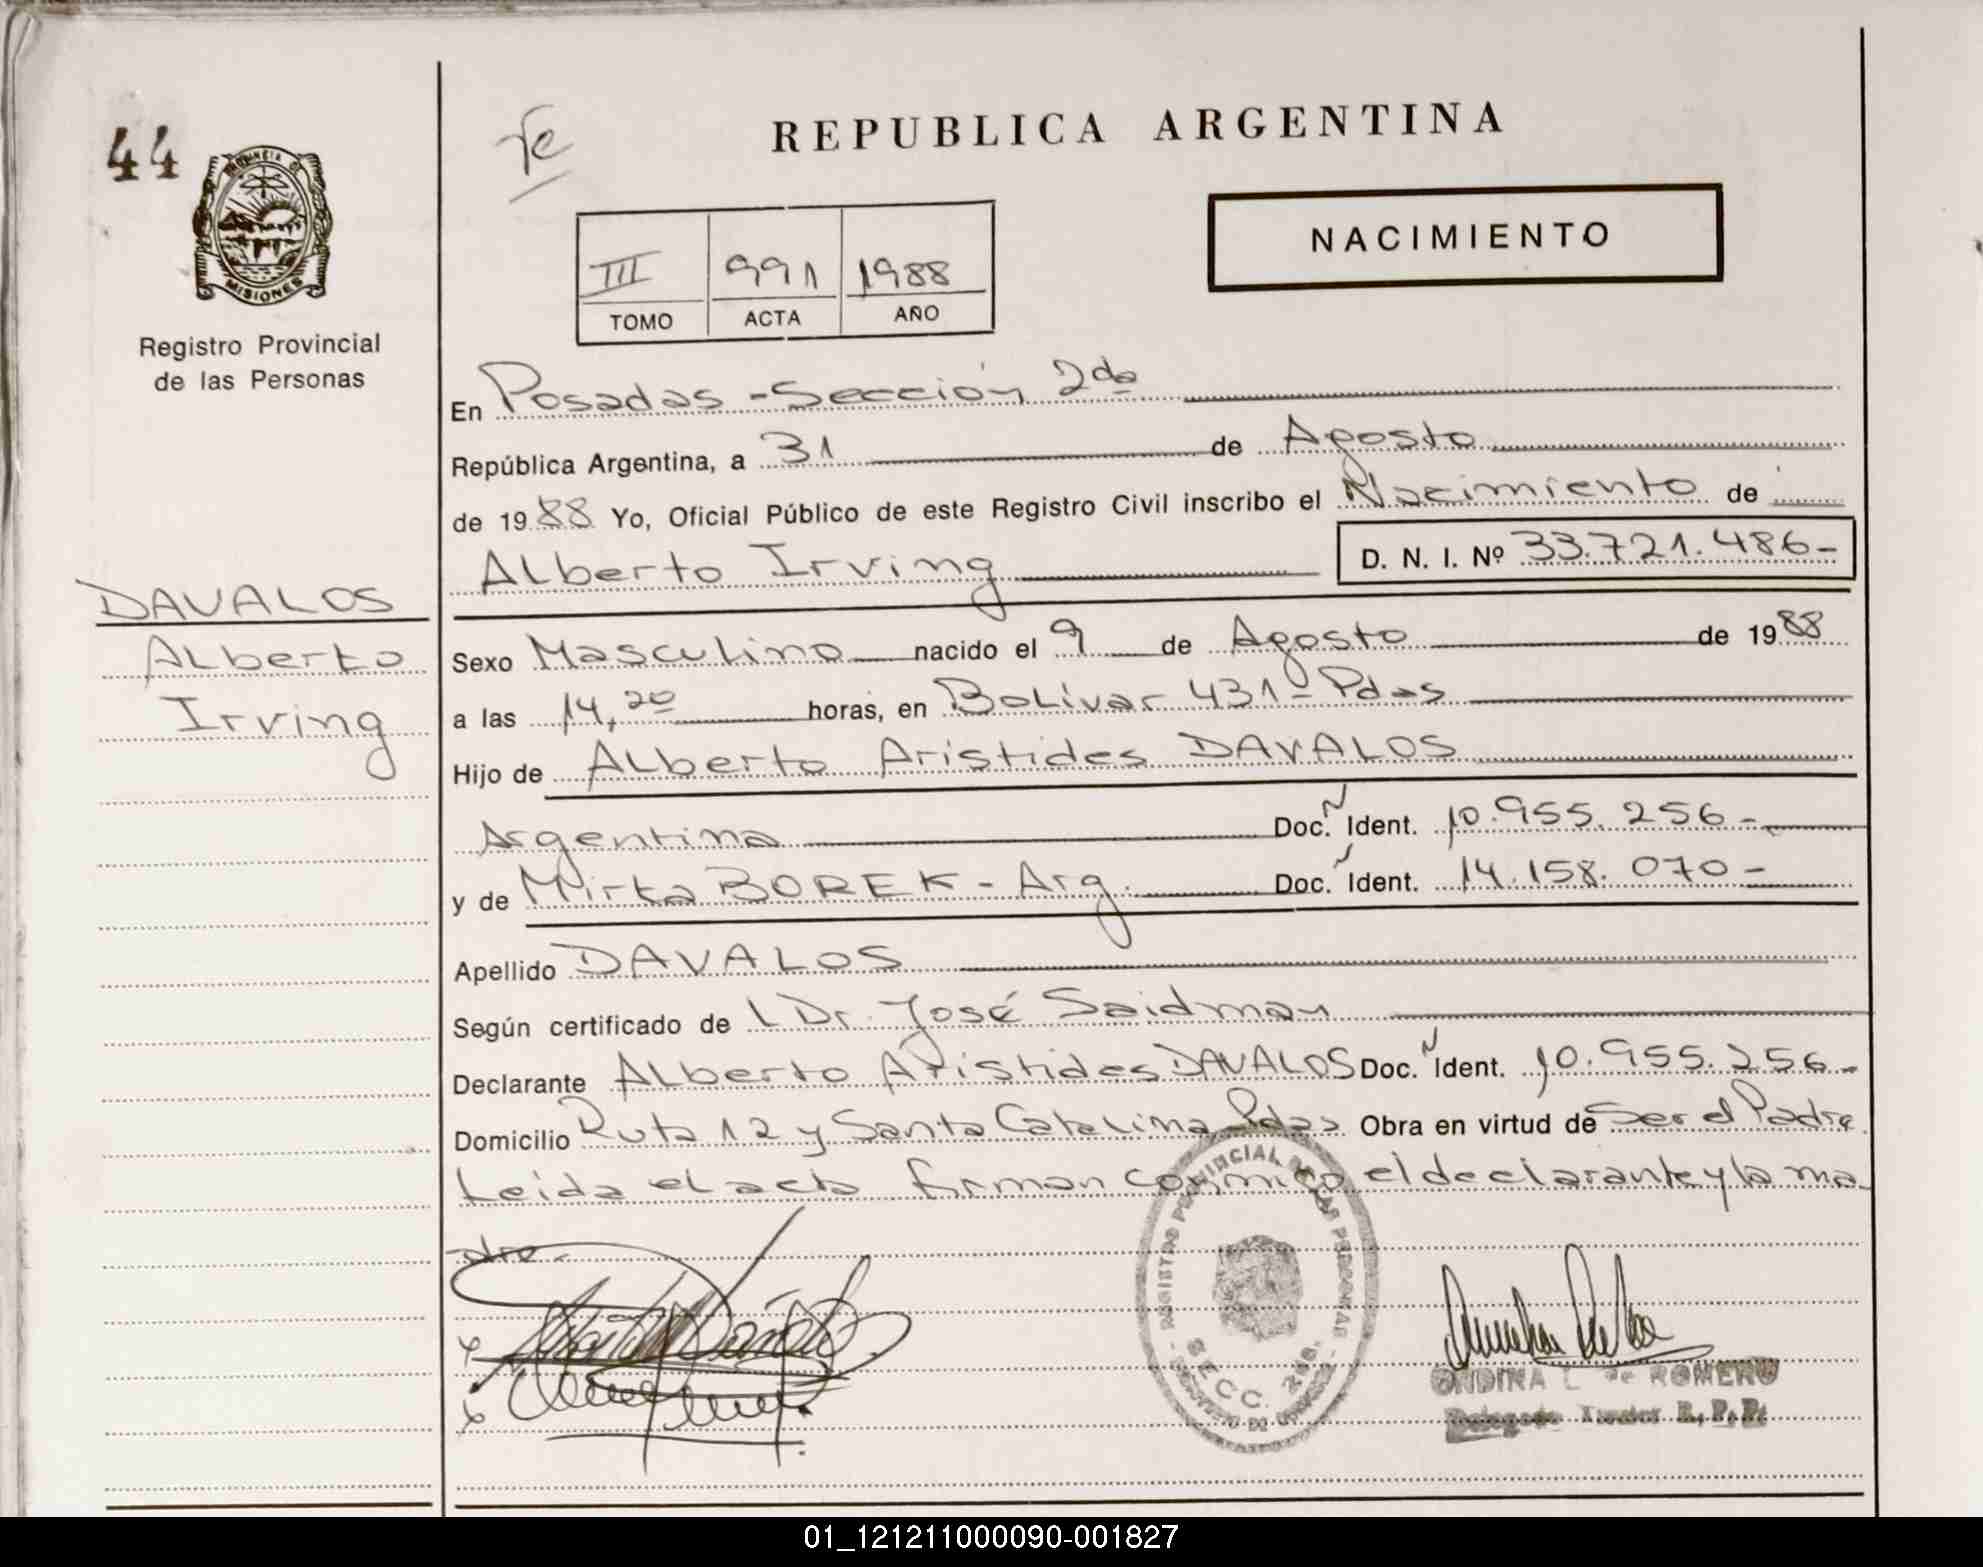 44
PROVINCIA DE
MISIONES
Registro Provincial
de las Personas
DAVALOS
Alberto
Irving
REPUBLICA ARGENTINA
NACIMIENTO
III 991 1988
TOMO ACTA AÑO
En Posadas - Sección 2da
República Argentina, a 31 de Agosto
de 1988 Yo, Oficial Público de este Registro Civil inscribo el Nacimiento de
Alberto Irving D. N. I. Nº 33.721.486-
Sexo Masculino nacido el 9 de Agosto de 1988
a las 14,20 horas, en Bolívar 431 - Pdas
Hijo de Alberto Aristides DAVALOS
Argentina Doc. Ident. 10.955.256-
y de Mirta BOREK - Arg. Doc. Ident. 14.158.070-
Apellido DAVALOS
Según certificado de L Dr. José Saidman
Declarante Alberto Aristides DAVALOS Doc. Ident. 10.955.256-
Domicilio Ruta 12 y Santa Catalina Pdas Obra en virtud de Ser el Padre
Leida el acta firman conmigo el declarante y la ma
dre.-
REGISTRO PROVINCIAL DE LAS PERSONAS
SECC. 2da.
ONDINA L. de ROMERO
R. P. P.
01_121211000090-001827